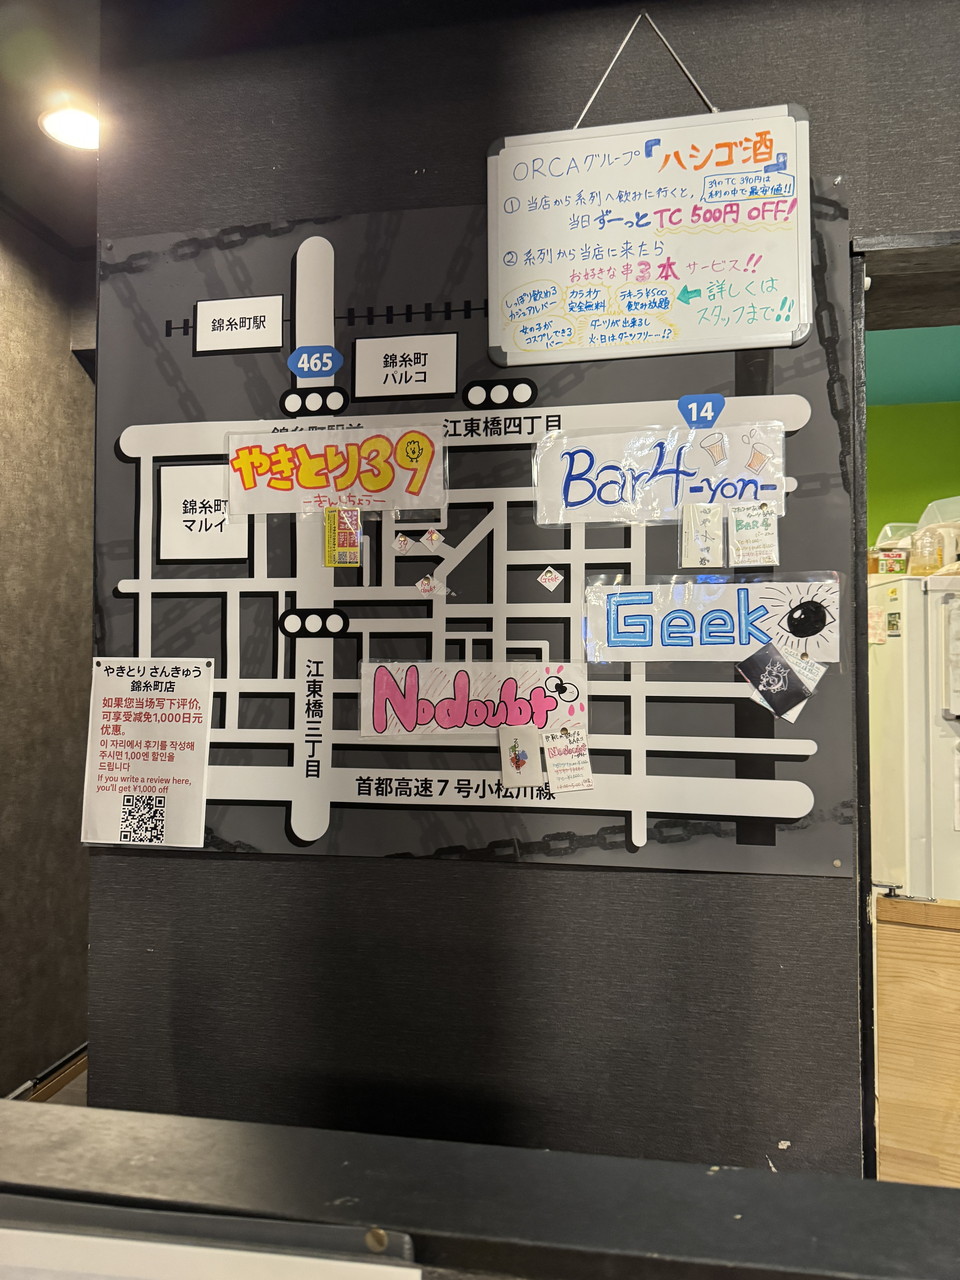 ORCAグループ『ハシゴ酒』
① 当店から系列へ飲みに行くと、
39のTC 390円は
系列の中で最安値!!
当日ずーっとTC 500円 OFF!
② 系列から当店に来たら
お好きな串3本サービス!!
しっぽり飲める
カジュアルバー
カラオケ
完全無料
テキーラ¥500
飲み放題
詳しくは
スタッフまで!!
女の子が
コスプレできる
バー
ダーツが出来るし
火・日はダーツフリー…!?
錦糸町駅
465
錦糸町
パルコ
14
江東橋四丁目
やきとり39
Bar4
-yon-
錦糸町
マルイ
Geek
Nodoubt
江東橋三丁目
首都高速7号小松川線
やきとり さんきゅう
錦糸町店
如果您当场写下评价,
可享受减免1,000日元
优惠。
이 자리에서 후기를 작성해
주시면 1,00엔 할인을
드립니다
If you write a review here,
you'll get ¥1,000 off